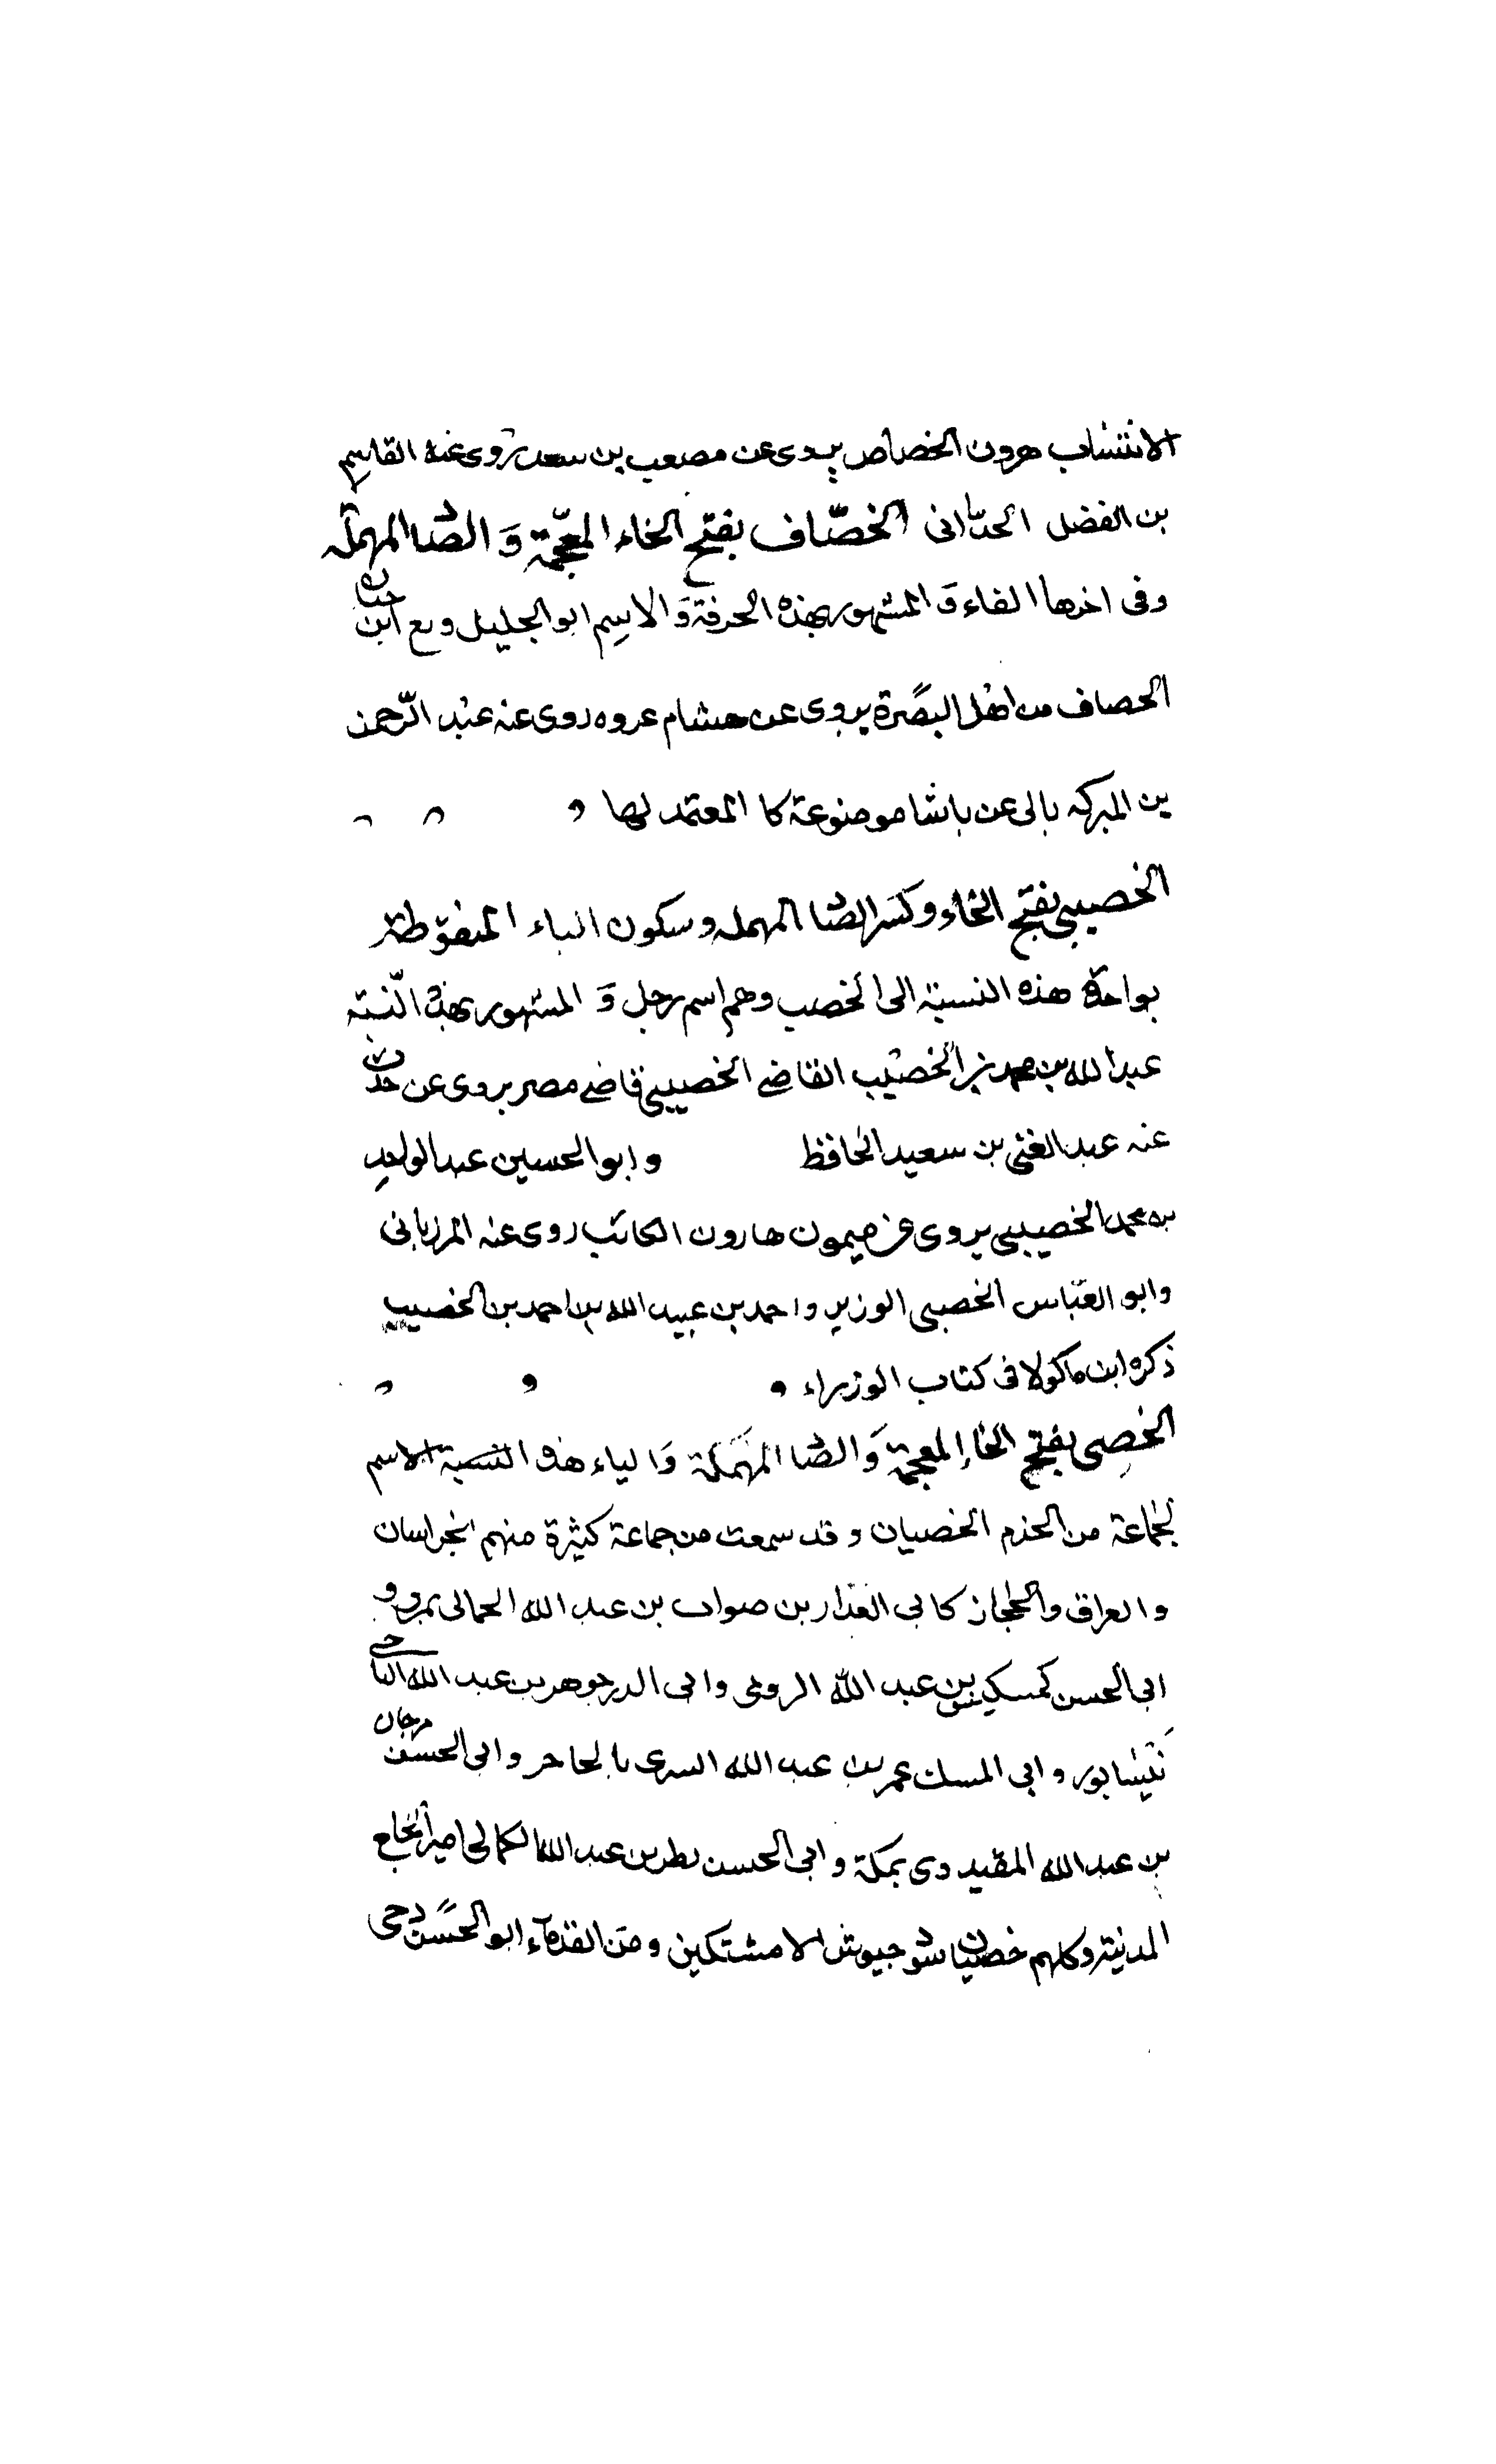 الانتساب هرون الخصاص يروى عن مصعب بن سعد روى عنه القاسم
بن الفضل الحدانى الخصّاف بفتح الخاء المعجمة وَالصاد المهملة
وفى اخرها الفاء وَ المشهور بهذه الحرفة وَالاسم ابو الجليل وبع ابن حيان
الحصاف من اهل البصرة يروى عن هشام عروه روى عنه عبد الرّحمن
بن المبركه بالى عن باشا موضوعة كا المعتمد لها
الخصيبى بفتح الخاء وكسر الصاد المهمله وسكون الباء المنقوطة
بواحدة هذه النسبة الى الخصب وهم اسم رجل وَ المشهور بهذه النّسبة
عبد الله بن محمد بن الخصيب القاضى الخصيبى قاضى مصر يروى عن حدث
عنه عبد الغنى بن سعيد الحافظ وابو الحسين عبد الواحد
بن محمد الخصيبى يروى عن ميمون هارون الكاتب روى عنه المرزبانى
وابو العبّاس الخصبى الوزير واحمد بن عبيد الله بن احمد بن الخصيب
ذكره ابن ماكولا فى كتاب الوزراء
الخصى بفتح الخاء المعجمة وَالصاد المهملة وَالياء هذه النسبة الاسم
لجماعة من الخدم الخصيان وقد سمعت من جماعة كثيرة منهم بخراسان
والعراق والحجاز كابى الغدار بن صواب بن عبد الله الحمالى بمرو و
ابى الحسن كمسكين بن عبد الله الرومى وابى الدر جوهر بن عبد الله التاجى
نيشابور وابى المسك عمر بن عبد الله السرى بالحاجر وابى الحسن مرجان
بن عبد الله المقيدوى بمكة وابى الحسن بطر بن عبد الله الكمالى امير الحاج
المدينة وكلهم خصيان جيوش الامشتكين ومن القدماء ابو الحسن دحى